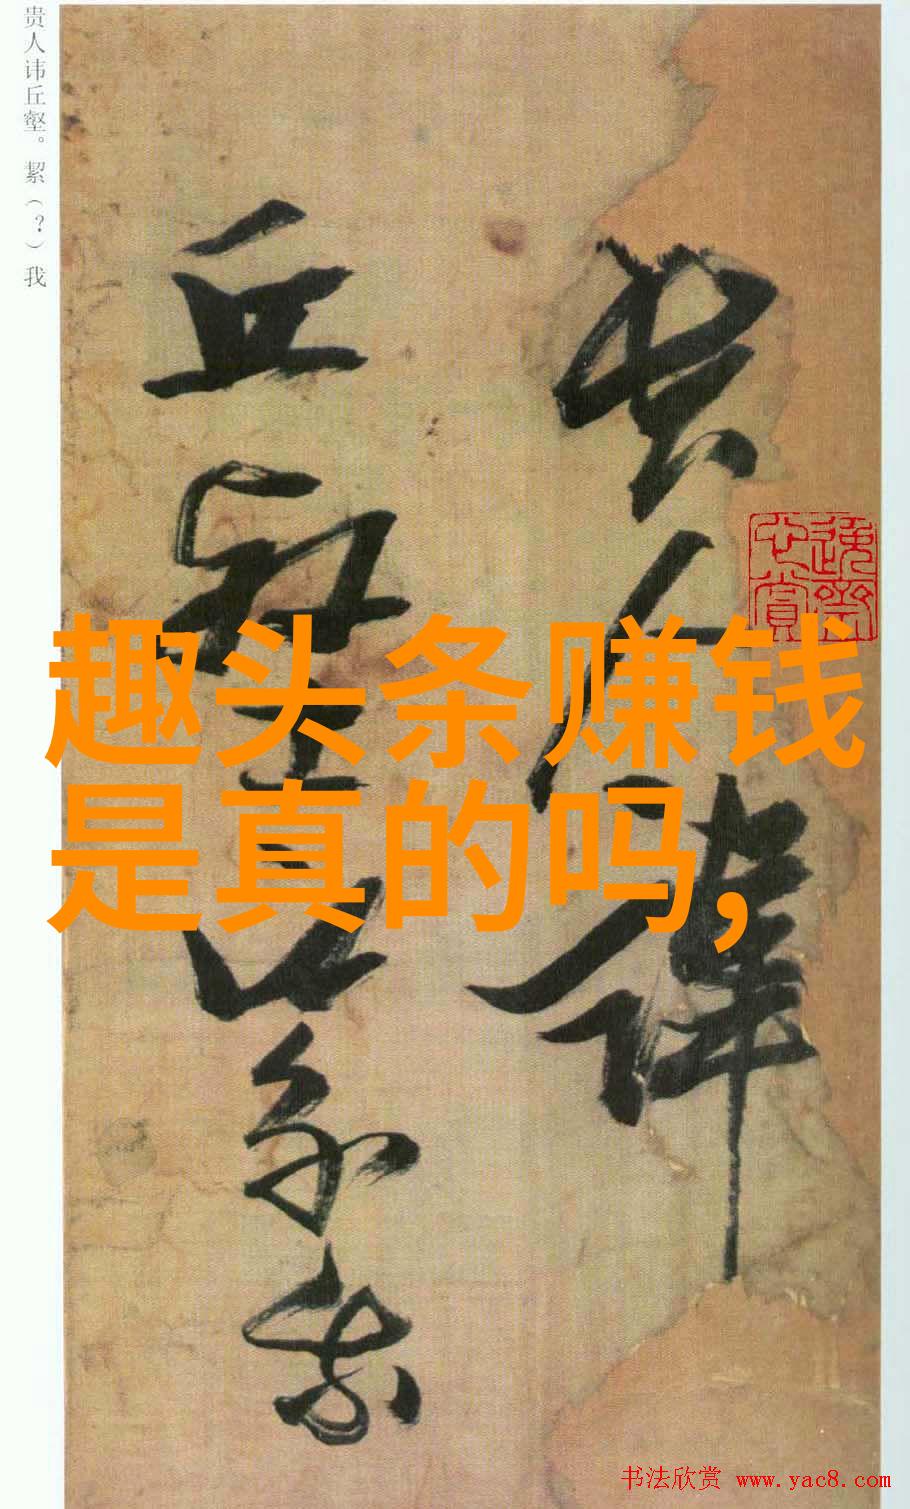 贵人讳丘壑。絜（？）我
贵人讳
丘壑絜我
趣头条赚钱
是真的吗,
书法欣赏 www.yac8.com